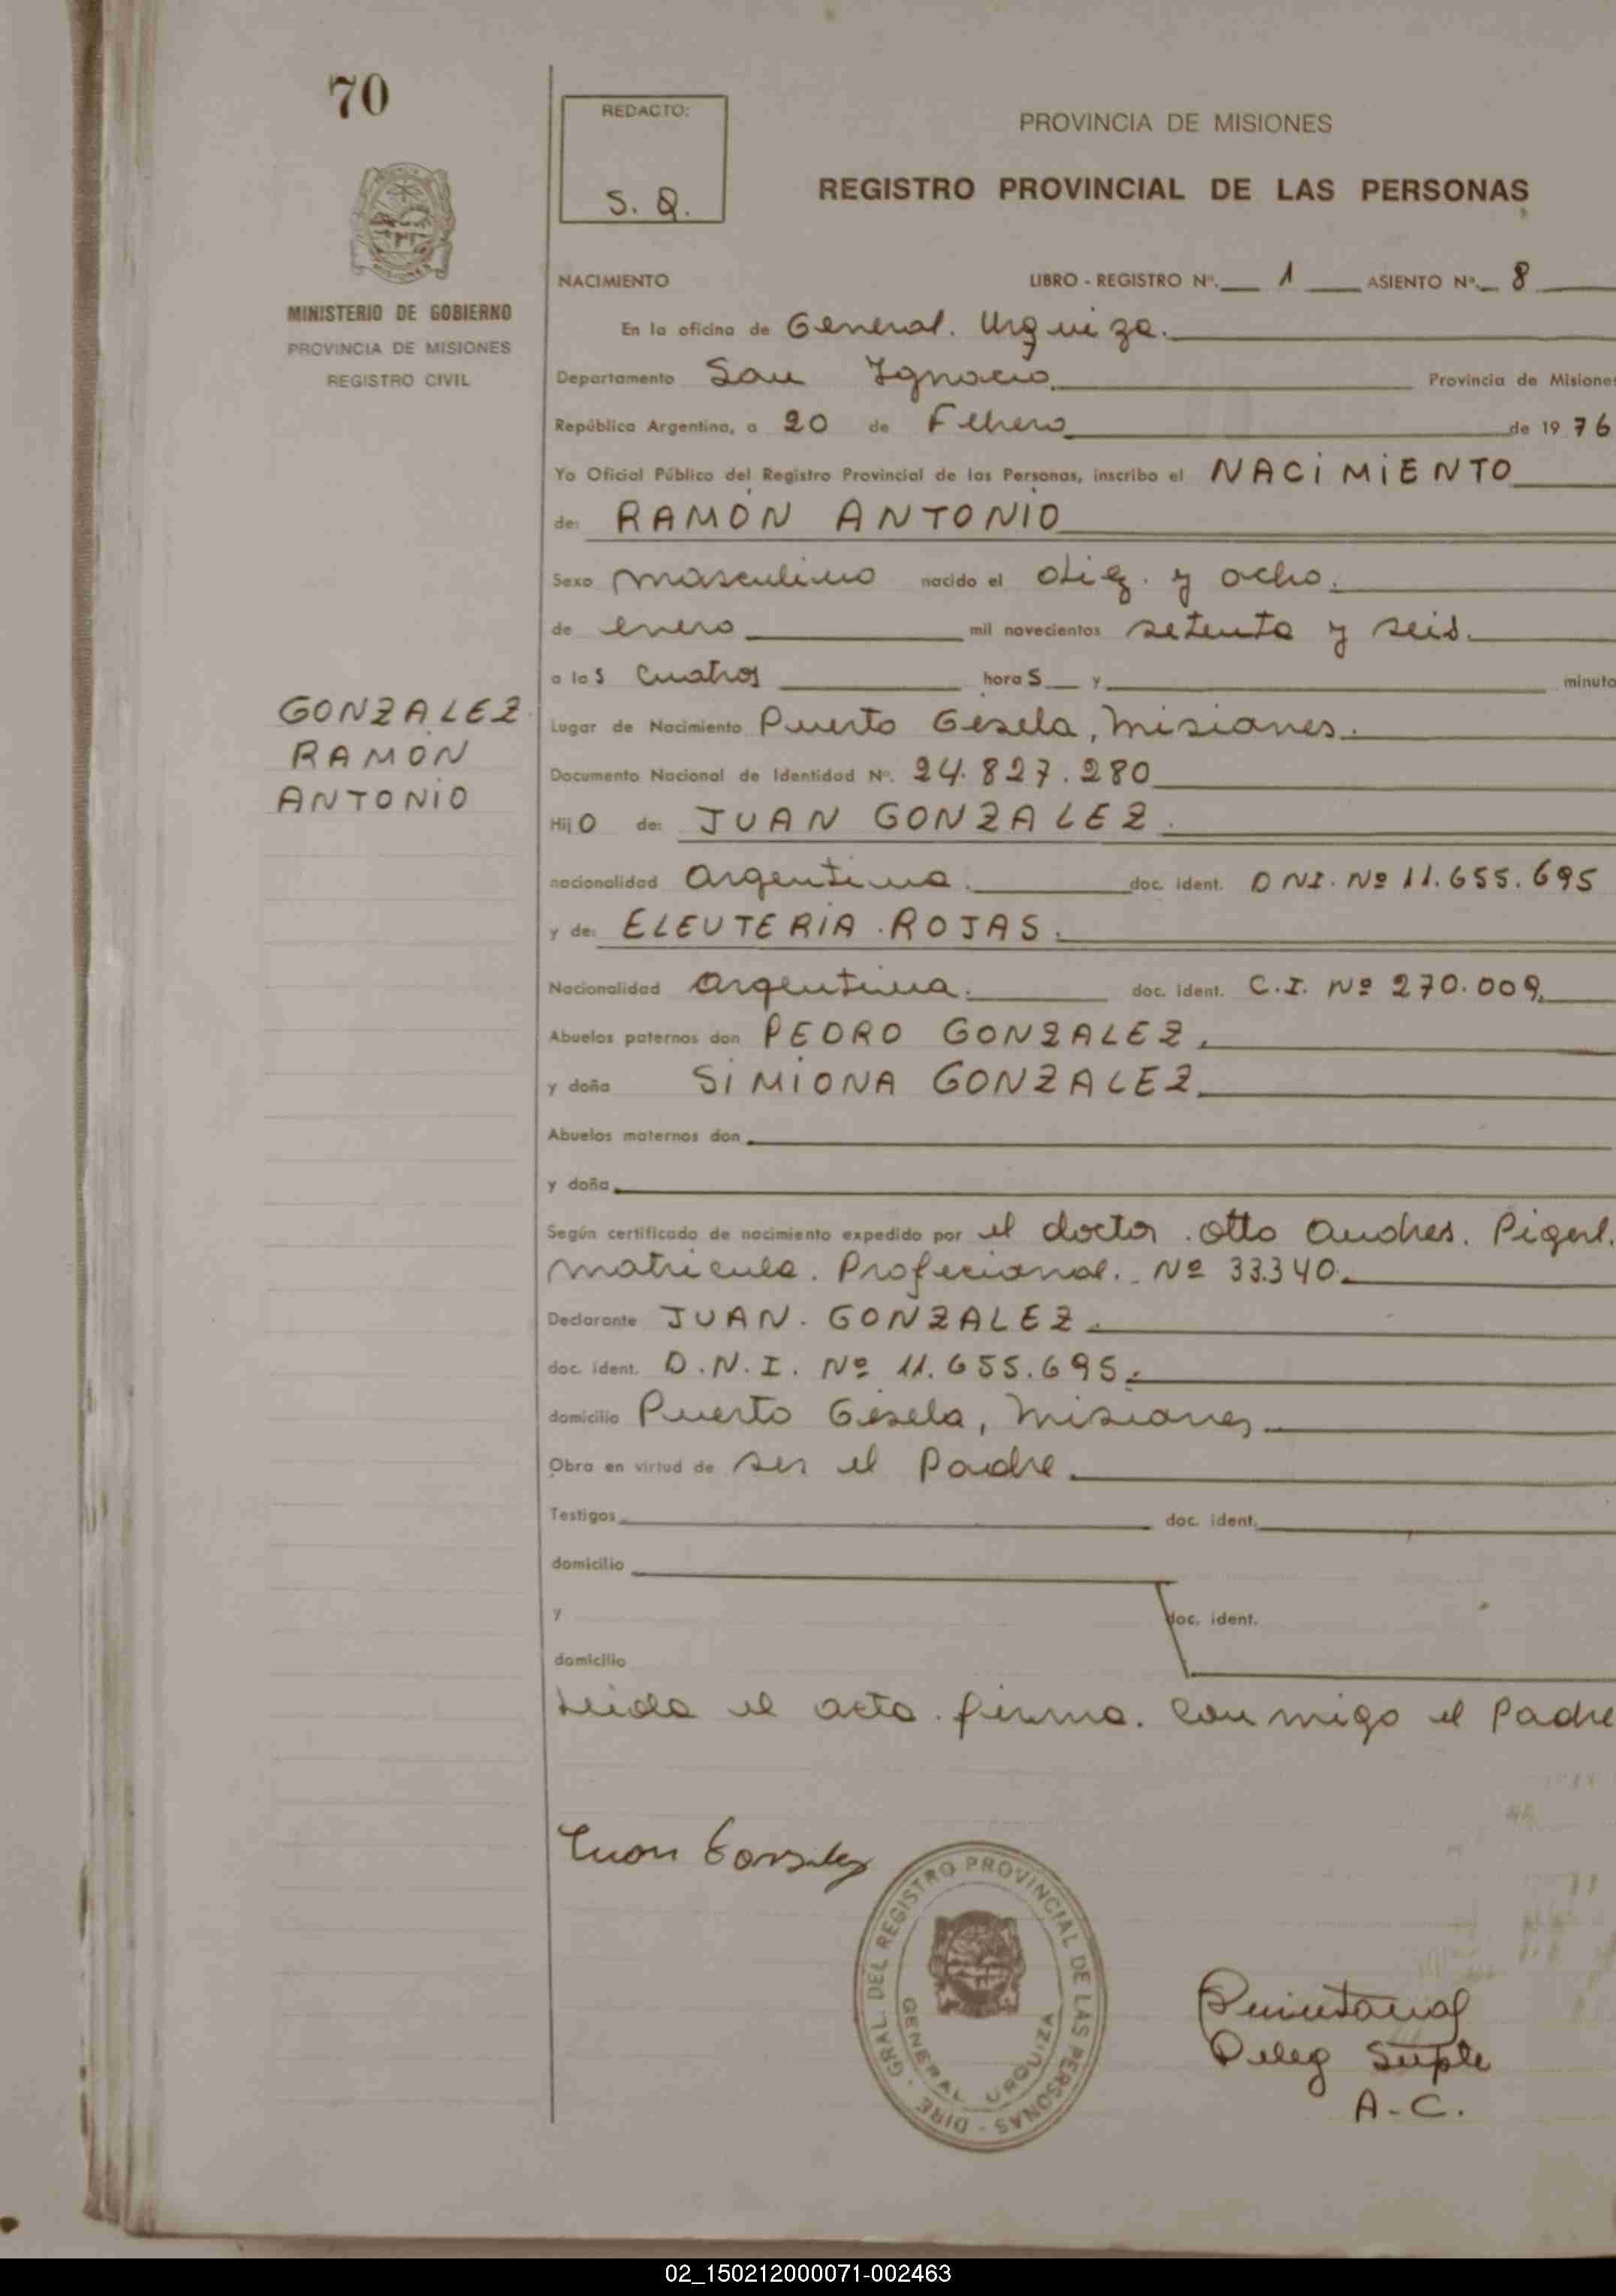 70
REDACTO:
S. Q.
PROVINCIA DE MISIONES
REGISTRO PROVINCIAL DE LAS PERSONAS
MINISTERIO DE GOBIERNO
PROVINCIA DE MISIONES
REGISTRO CIVIL
NACIMIENTO LIBRO - REGISTRO Nº. 1 ASIENTO Nº. 8
En la oficina de General. Urquiza.
Departamento San Ignacio. Provincia de Misiones
República Argentina, a 20 de Febrero de 1976
Yo Oficial Público del Registro Provincial de las Personas, inscribo el NACIMIENTO
de: RAMÓN ANTONIO
Sexo masculino nacido el diez. y ocho.
de enero mil novecientos setenta y seis.
a las cuatros horas y minuto
GONZALEZ
RAMÓN
ANTONIO
Lugar de Nacimiento Puerto Gesela, Misiones.
Documento Nacional de Identidad Nº. 24.827.280
Hijo de: JUAN GONZALEZ.
nacionalidad Argentina. doc. ident. DNI. Nº 11.655.695
y de: ELEUTERIA. ROJAS.
Nacionalidad Argentina. doc. ident. C.I. Nº 270.009.
Abuelos paternos don PEDRO GONZALEZ.
y doña SIMIONA GONZALEZ.
Abuelos maternos don
y doña
Según certificado de nacimiento expedido por el doctor. Otto Andres.
matricula. Profecional. Nº 33.340.
Declarante JUAN. GONZALEZ.
doc. ident. D.N.I. Nº 11.655.695.
domicilio Puerto Gesela, Misiones
Obra en virtud de ser el Padre.
Testigos doc. ident.
domicilio
y doc. ident.
domicilio
Leida el acta. firma. Conmigo el Padre
Juan Gonzalez
DIRE. GRAL. DEL REGISTRO PROVINCIAL DE LAS PERSONAS -
GENERAL URQUIZA
Deleg Suple
A-C.
02_150212000071-002463